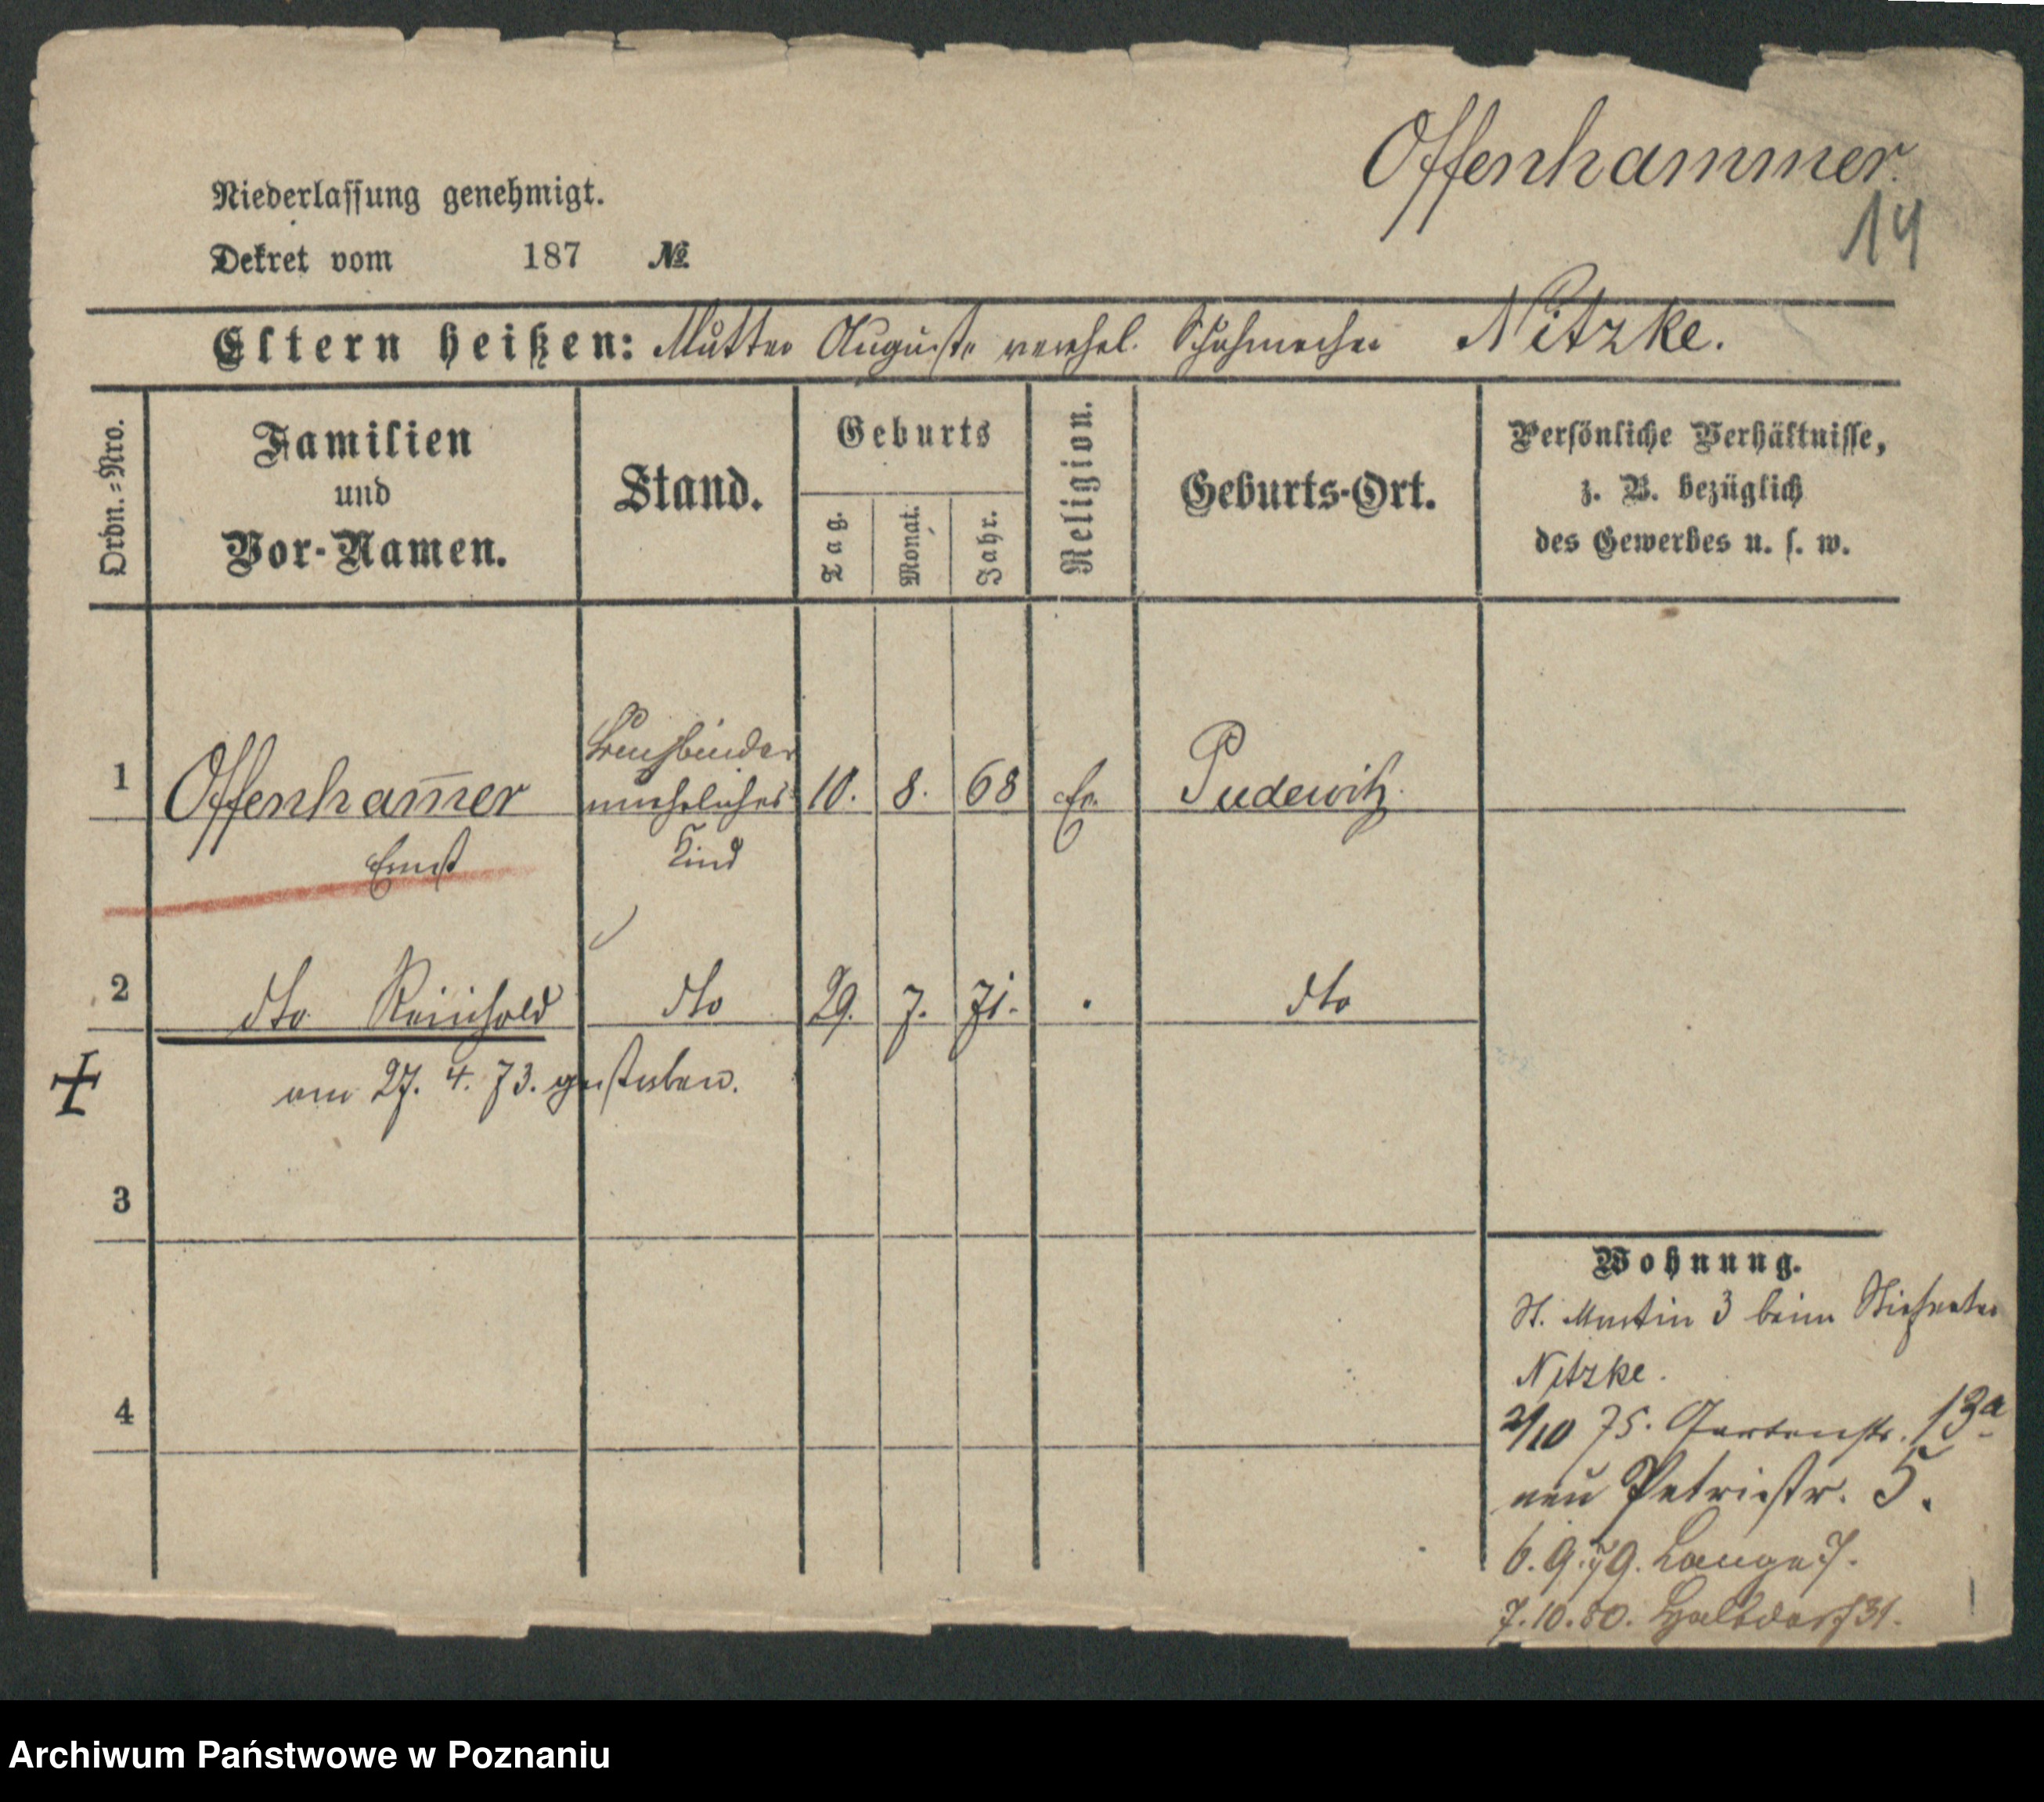 Offenhammer.
14
Niederlassung genehmigt.
Dekret vom 187 №
Eltern heißen: Mutter Auguste verehel. Schuhmacher Nitzke.
Ordn.=Nro.
Familien
und
Vor-Namen.
Stand.
Geburts
Tag.
Monat.
Jahr.
Religion.
Geburts-Ort.
Persönliche Verhältnisse,
z. B. bezüglich
des Gewerbes u. s. w.
1 Offenham̅er uneheliches 10. 8. 68 Ev. Pudewitz.
Ernst Kind
2 dto Reinhold dto 29. 7. 71. dto
am 27. 4. 73. gestorben.
3
4
Wohnung.
St. Martin 3 beim Stiefvater
Nitzke.
2/10 75. Gartenstr. 13a
neu Petristr. 5.
6.9.79. Lange 7.
7.10.80. Halbdorf 31.
Archiwum Państwowe w Poznaniu